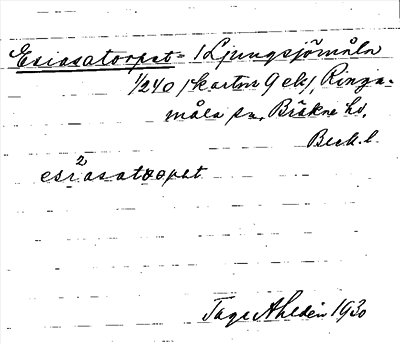 Esiasatorpet = /Ljungsjömåla
1/240 /kartan 9 ek/, Ringa-
måla sn, Bräkne hd,
Blek. l.
2
esiasatorpet
Tage Ahldén 1930